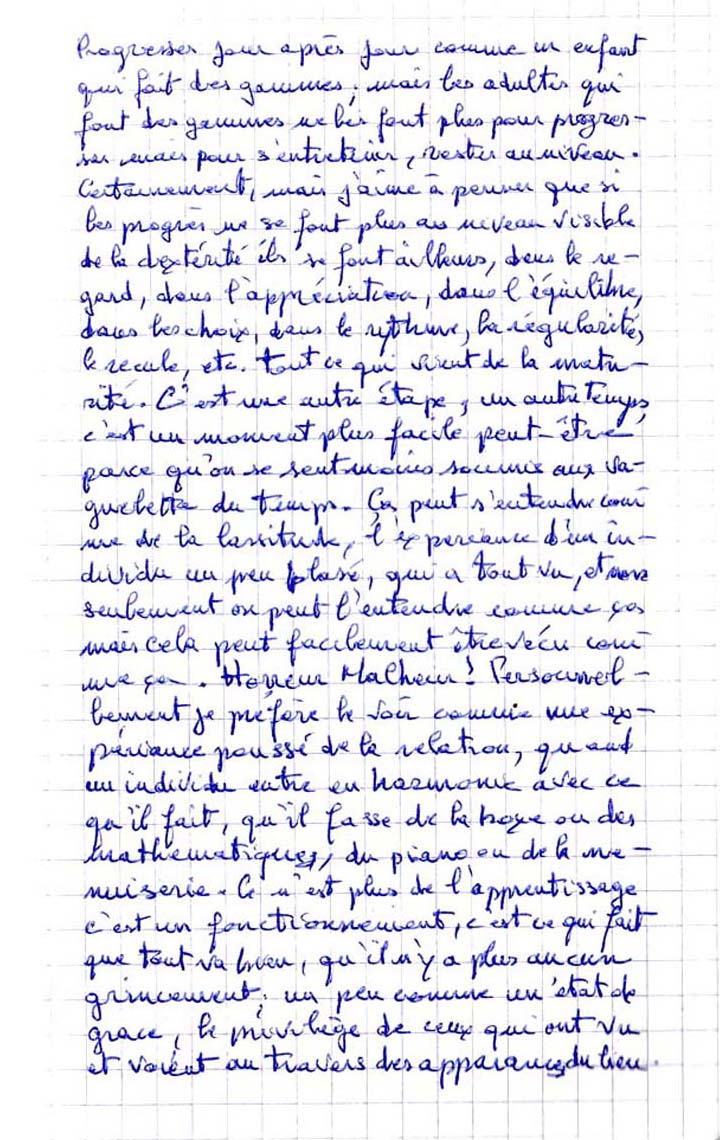 Progresser jour après jour comme un enfant
qui fait des gammes ; mais les adultes qui
font des gammes ne les font plus pour progres-
ser mais pour s'entretenir, rester au niveau.
Certainement, mais j'aime à penser que si
les progrès ne se font plus au niveau visible
de la dextérité ils se font ailleurs, dans le re-
gard, dans l'appréciation, dans l'équilibre,
dans les choix, dans le rythme, la régularité,
le recule, etc. tout ce qui vient de la matu-
rité. C'est une autre étape, un autre temps,
c'est un moment plus facile peut-être
parce qu'on se sent moins soumis aux
du temps. Ça peut s'entendre com
me de la lassitude, l'expereance d'un in-
dividu un peu blasé, qui a tout vu, et non
seulement on peut l'entendre comme ça
mais cela peut facilement être vécu com
me ça. Horreur Malheur ! Personnel-
lement je préfère le voir comme une ex-
périance poussé de la relation, quand
un individu entre en harmonie avec ce
qu'il fait, qu'il fasse de la boxe ou des
mathématiques, du piano ou de la me-
nuiserie. Ce n'est plus de l'apprentissage
c'est un fonctionnement, c'est ce qui fait
que tout va bien, qu'il n'y a plus aucun
grincement ; un peu comme un état de
grace, le privilège de ceux qui ont vu
et voient au travers des apparances du lieu.